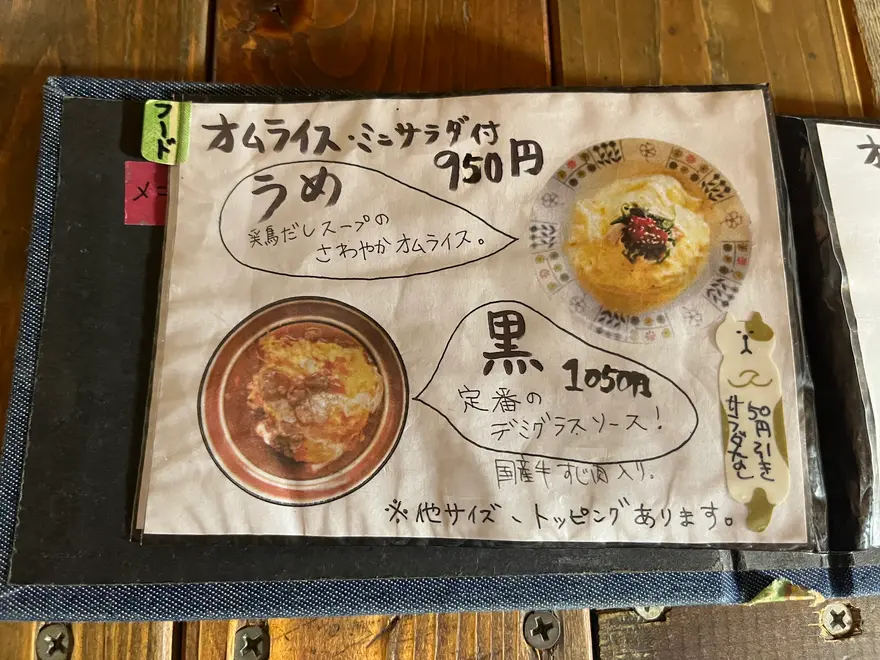 フード
メニ
オムライス・ミニサラダ付
950円
うめ
鶏だしスープの
さわやかオムライス。
黒
1050円
定番の
デミグラスソース!
国産牛すじ肉入り。
サラダなし
50円引き
※他サイズ、トッピングあります。
オ